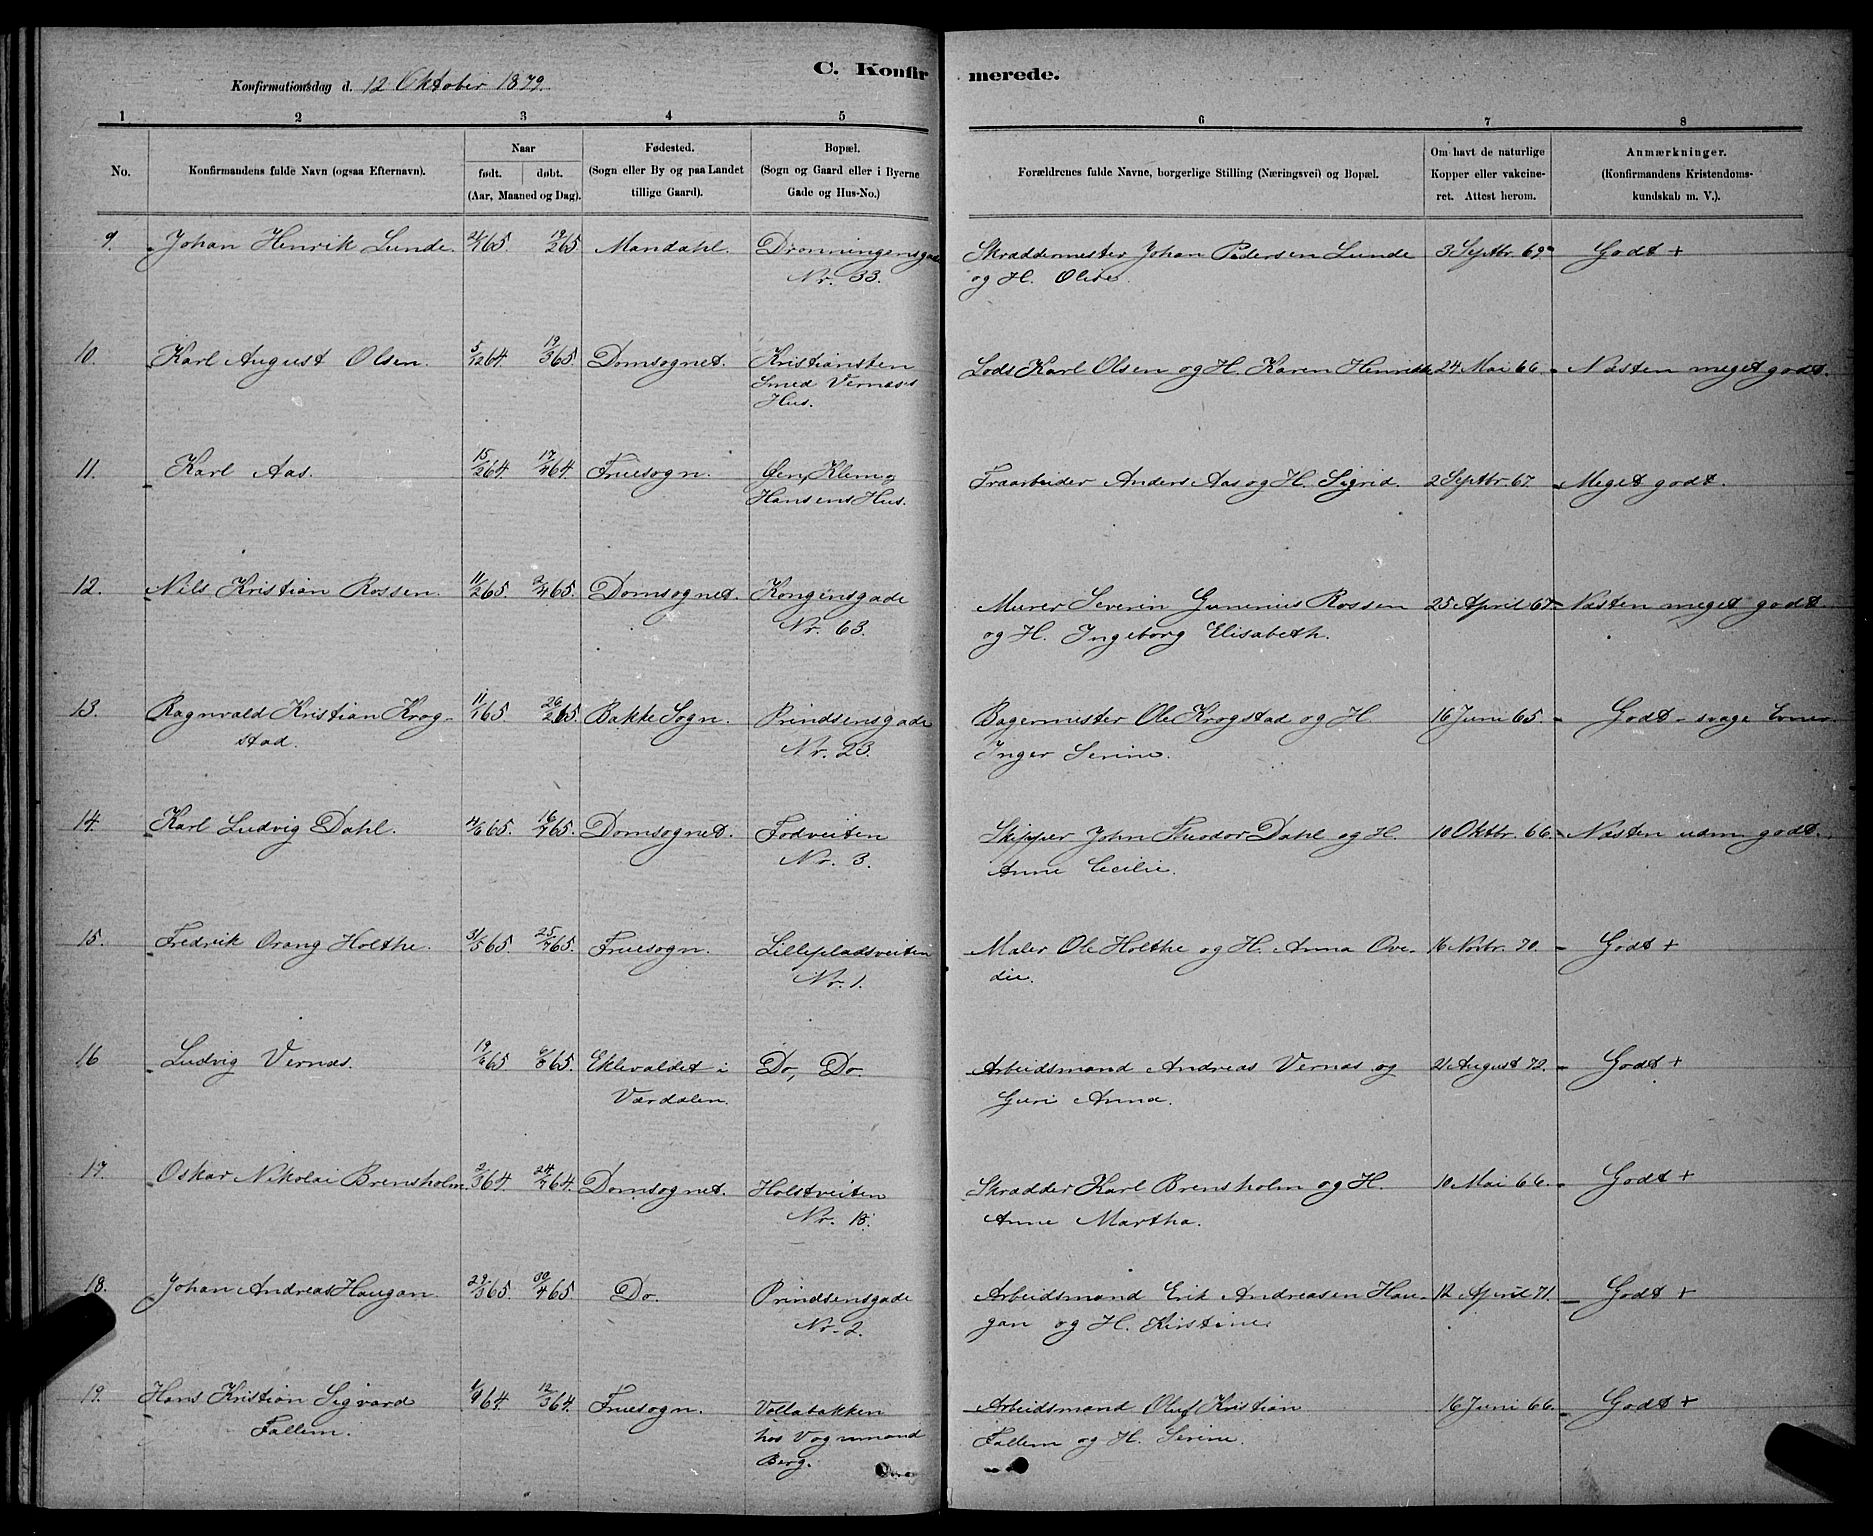 C. Konfir merede.
Konfirmationsdag d. 12 Oktober 1879.
1 2 3 4 5 6 7 8
No.
Konfirmandens fulde Navn (ogsaa Efternavn).
Naar
født. døbt.
(Aar, Maaned og Dag).
Fødested.
(Sogn eller By og paa Landet
tillige Gaard).
Bopæl.
(Sogn og Gaard eller i Byerne
Gade og Hus-No.)
Forældrenes fulde Navne, borgerlige Stilling (Næringsvei) og Bopæl.
Om havt de naturlige
Kopper eller vakcine-
ret. Attest herom.
Anmærkninger.
(Konfirmandens Kristendoms-
kundskab m. V.).
9. Johan Henrik Lunde. 65 19/2 65 Mandahl. Dronningensgade Skræddermester Johan Pedersen Lunde 3 Septbr. 69 Godt +
Nr. 33. og H. Olive.
10. Karl August Olsen. 5/12 64. 19/3 65. Domsognet. Kristiansten Lods Karl Olsen og H. Karen Henrikke 24. Mai 66. Næsten meget godt.
Smed Vernæs's
Hus.
11. Karl Aas. 15/2 64 17/4 64. Fruesogn. Øen, Klem. Træarbeider Anders Aas og H. Sigrid. 2 Septbr. 67. Meget godt.
Hansens Hus.
12. Nils Kristian Rossen. 11/2 65. 2/4 65. Domsognet. Kongensgade Murer Severin Gunerius Rossen 25 April 67. Næsten meget godt
Nr. 63. og H. Ingeborg Elisabeth.
13. Ragnvald Kristian Krog- 11/1 65. 26/2 65. Bakke Sogn. Prindsensgade Bagermester Ole Krogstad og H. 16 Juni 65. Godt - svage Evner.
stad. Nr. 23. Inger Serine.
14. Karl Ludvig Dahl. 4/6 65. 16/7 65. Domsognet. Fodveiten Skipper John Theodor Dahl og H. 10 Oktbr. 66. Næsten udm. godt.
Nr. 3. Anne Cecilie.
15. Fredrik Orang Holthe. 31/5 65. 25/7 65. Fruesogn. Lillepladsveiten Maler Ole Holthe og H. Anna Ove- 16 Novbr. 70. Godt +
Nr. 1. die.
16 Ludvig Vernæs. 19/6 65. 6/8 65. Eklevaldet i Do, Do. Arbeidsmand Andreas Vernæs og 21 August 72. Godt +
Værdalen. Guri Anna.
17. Oskar Nikolai Brensholm. 2/3 64. 24/7 64. Domsognet. Holstveiten Skrædder Karl Brensholm og H. 10 Mai 66. Godt +
Nr. 18. Anne Martha.
18. Johan Andreas Haugan. 29/3 65. 30/4 65. Do. Prindsensgade Arbeidsmand Erik Andreasen Hau- 12 April 71. Godt +
Nr. 2. gan og H. Kirstine.
19. Hans Kristian Sigvard 64. 12/3 64. Fruesogn. Vollabakken Arbeidsmand Oluf Kristian 16 Juni 66. Godt +
Fallem. hos Vognmand Fallem og H. Serine.
Berg.